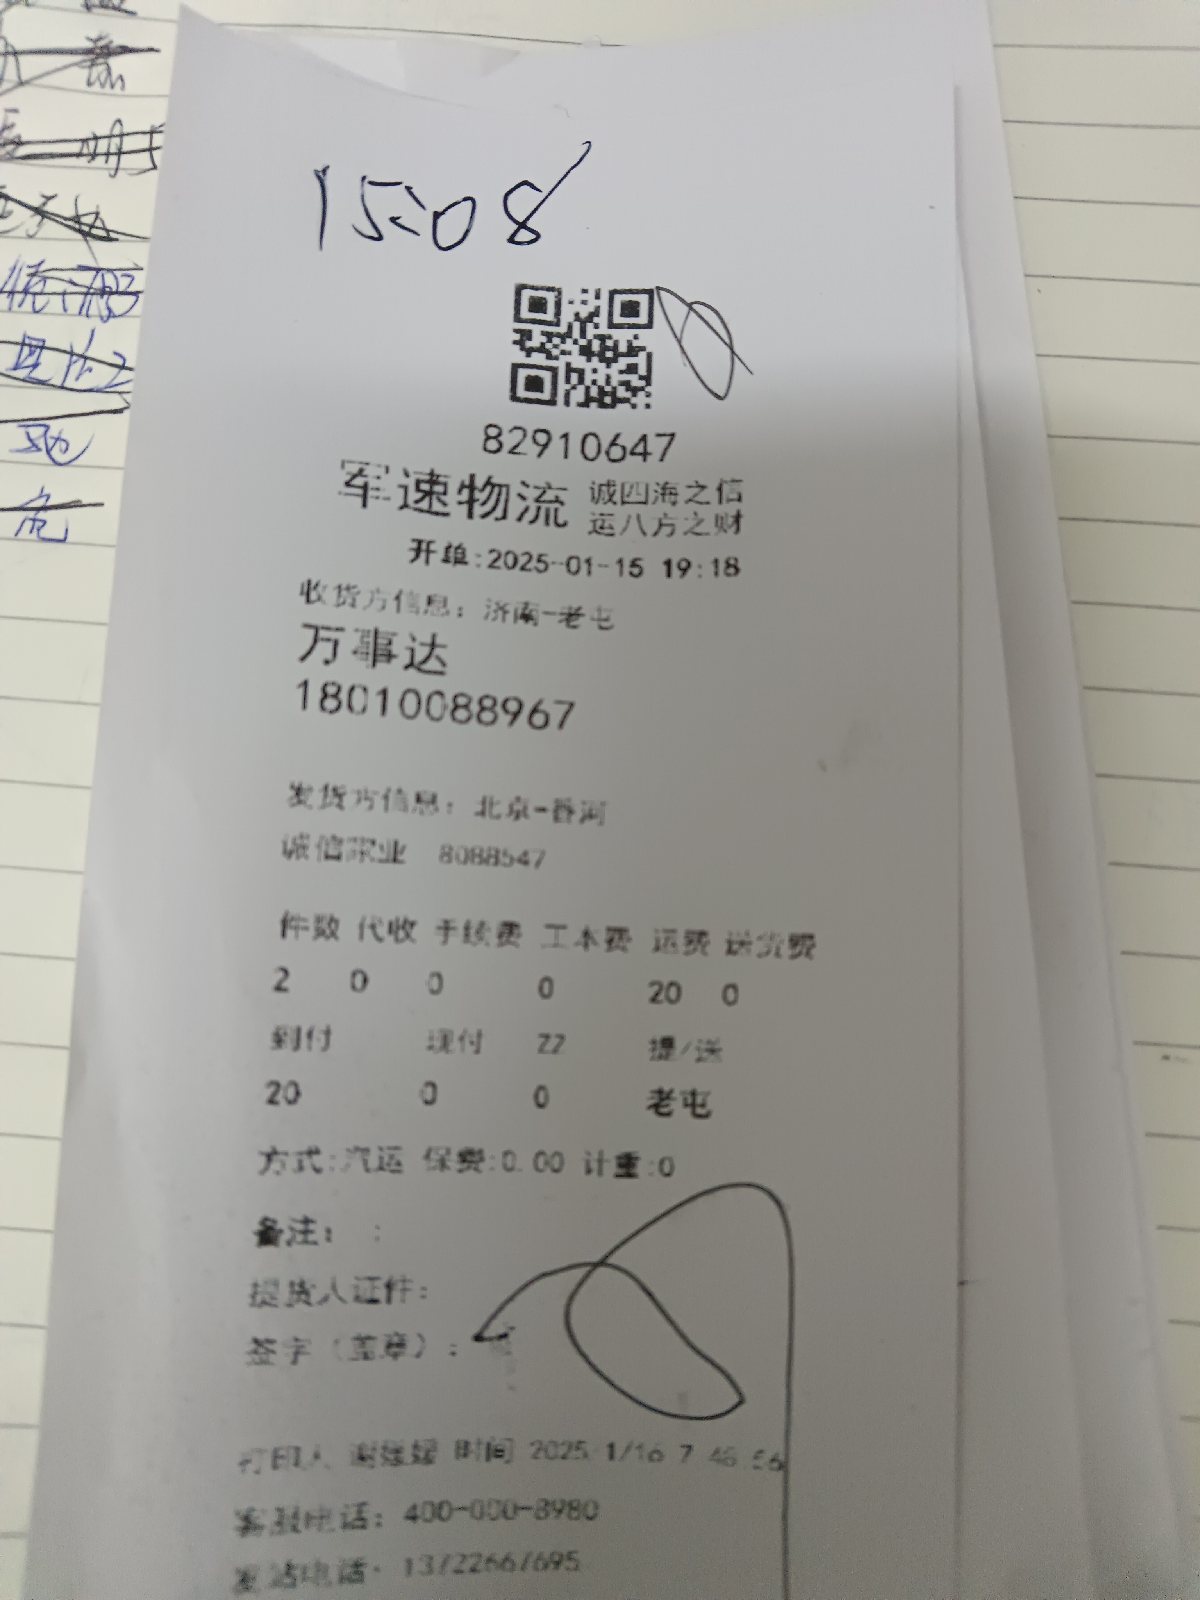 15:08
82910647
军速物流 诚四海之信
运八方之财
开单:2025-01-15 19:18
收货方信息：济南-老屯
万事达
18010088967
发货方信息：北京-香河
诚信 业 8088547
件数 代收 手续费 工本费 运费 送货费
2 0 0 0 20 0
到付 现付 ZZ 提/送
20 0 0 老屯
方式:汽运 保费:0.00 计重:0
备注： :
提货人证件：
签字（盖章）：
打印人 谢媛媛 时间 2025/1/16 7:48:56
客服电话：400-000-8980
发站电话：13722667695